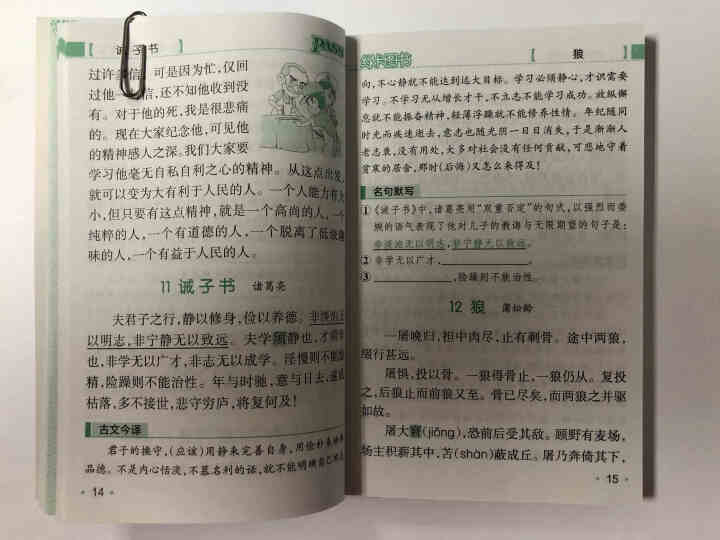 诫子书
PASS
过许多信。可是因为忙,仅回
过他一封信,还不知他收到没
有。对于他的死,我是很悲痛
的。现在大家纪念他,可见他
的精神感人之深。我们大家要
学习他毫无自私自利之心的精神。从这点出发,
就可以变为大有利于人民的人。一个人能力有大
小,但只要有这点精神,就是一个高尚的人,一个
纯粹的人,一个有道德的人,一个脱离了低级趣
味的人,一个有益于人民的人。
11 诫子书 诸葛亮
夫君子之行,静以修身,俭以养德。非淡泊无
以明志,非宁静无以致远。夫学须静也,才须学
也,非学无以广才,非志无以成学。淫慢则不能励
精,险躁则不能治性。年与时驰,意与日去,遂成
枯落,多不接世,悲守穷庐,将复何及!
古文今译
君子的操守,(应该)用静来完善自身,用俭朴来培养
品德。不是内心恬淡,不慕名利的话,就不能明确自己的志
14
绿卡图书
【 狼 】
向,不心静就不能达到远大目标。学习必须静心,才识需要
学习。不学习无从增长才干,不立志不能学习成功。放纵懈
怠就不能振奋精神,轻薄浮躁就不能修养性情。年纪随同
时光而疾速逝去,意志也随光阴一日日消失,于是渐渐人
老志衰,没有用处,大多对社会没有任何贡献,可悲地守着
贫寒的居舍,那时(后悔)又怎么来得及!
名句默写
① 《诫子书》中,诸葛亮用“双重否定”的句式,以强烈而委
婉的语气表现了他对儿子的教诲与无限期望的句子是:
非淡泊无以明志,非宁静无以致远。
② 非学无以广才,
③ ,险躁则不能治性。
12 狼 蒲松龄
一屠晚归,担中肉尽,止有剩骨。途中两狼,
缀行甚远。
屠惧,投以骨。一狼得骨止,一狼仍从。复投
之,后狼止而前狼又至。骨已尽矣,而两狼之并驱
如故。
屠大窘(jiǒng),恐前后受其敌。顾野有麦场,
场主积薪其中,苫(shàn)蔽成丘。屠乃奔倚其下,
15